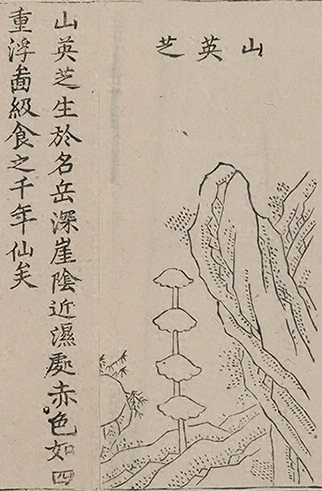 山英芝
山英芝生於名岳深崖陰近濕處赤色如四
重浮啚級食之千年仙矣